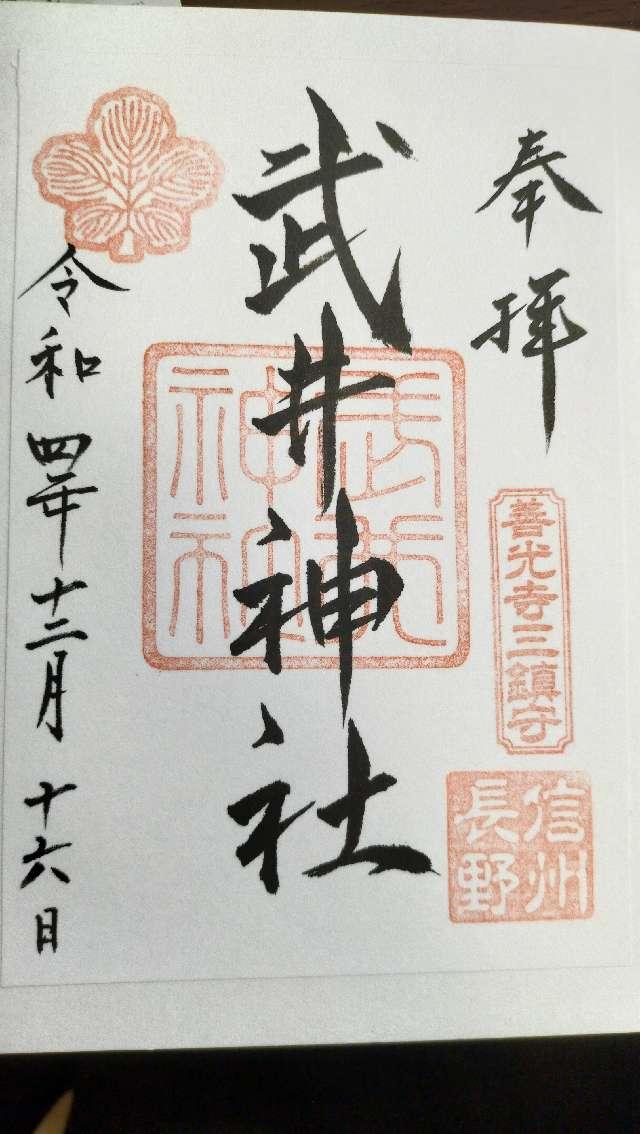 奉拝
善光寺三鎮守
信州
長野
武井神社
武井
神社
令和四年十二月十六日